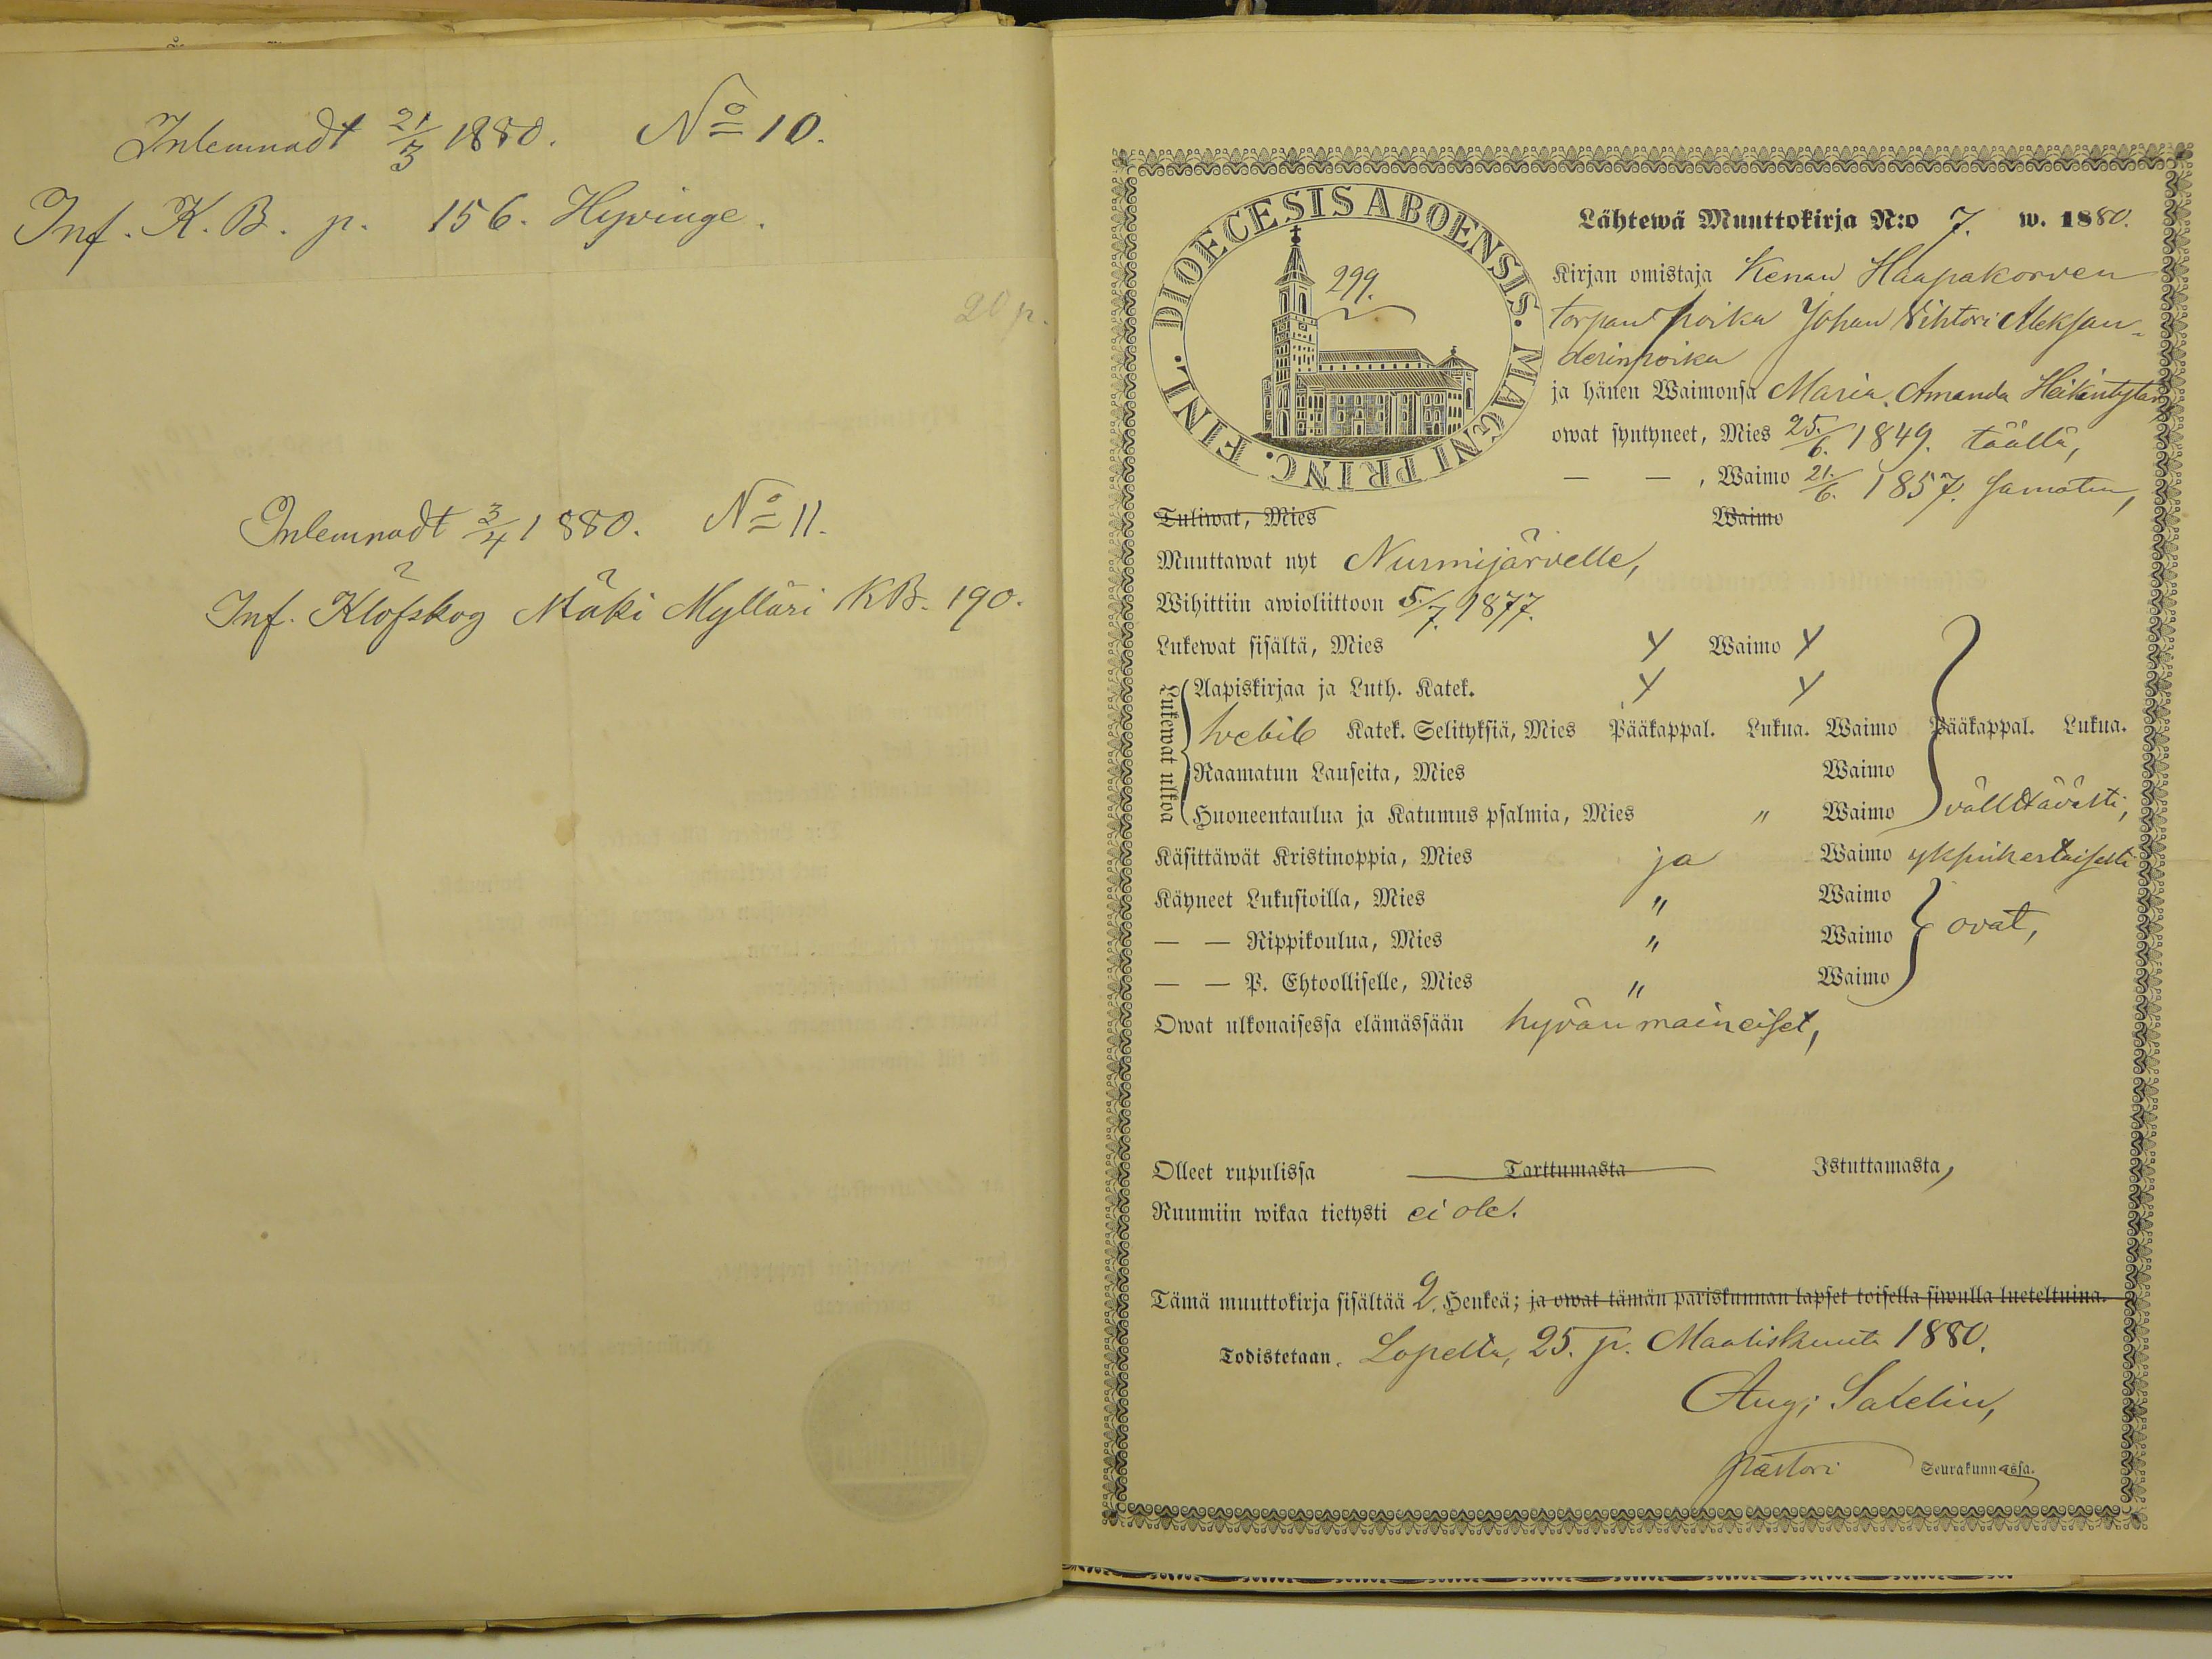 Inlemnadt 21/3 1880. No 10.
Inf. K.B. p. 156. Hyvinge.
20 p.
Inlemnadt 3/4 1880. No 11.
Inf. Klöfskog Mäki Mylläri KB. 190.
DIOECESIS ABOENSIS. MAGNI PRINC. FINL.
299.
Lähtewä Muuttokirja N:o 7. w. 1880.
Kirjan omistaja Kenan Haapakorven
torpan poika Johan Vihtori Aleksan-
derinpoika
ja hänen Waimonsa Maria Amanda Heikintytär
owat syntyneet, Mies 25./6. 1849. täällä,
— — , Waimo 21./6. 1857. samaten,
Tuliwat, Mies Waimo
Muuttawat nyt Nurmijärvelle,
Wihittiin awioliittoon 5./7. 1877.
Lukewat sisältä, Mies Y Waimo Y
Lukewat ulkoa
Aapiskirjaa ja Luth. Katek. Y Y
Katek. Selityksiä, Mies Pääkappal. Lukua. Waimo Pääkappal. Lukua.
Raamatun Lauseita, Mies Waimo
Huoneentaulua ja Katumus psalmia, Mies " Waimo välttävästi,
Käsittäwät Kristinoppia, Mies ja Waimo yksinkertaisesti
Käyneet Lukusioilla, Mies " Waimo
— — Rippikoulua, Mies " Waimo ovat,
— — P. Ehtoolliselle, Mies " Waimo
Owat ulkonaisessa elämässään hyvän maineiset,
Olleet rupulissa Tarttumasta Istuttamasta,
Ruumiin wikaa tietysti ei ole.
Tämä muuttokirja sisältää 2. Henkeä; ja owat tämän pariskunnan lapset toisella siwulla lueteltuina.
Todistetaan. Lopella, 25. p. Maaliskuuta 1880.
Aug; Salelin,
pastori Seurakunnassa.